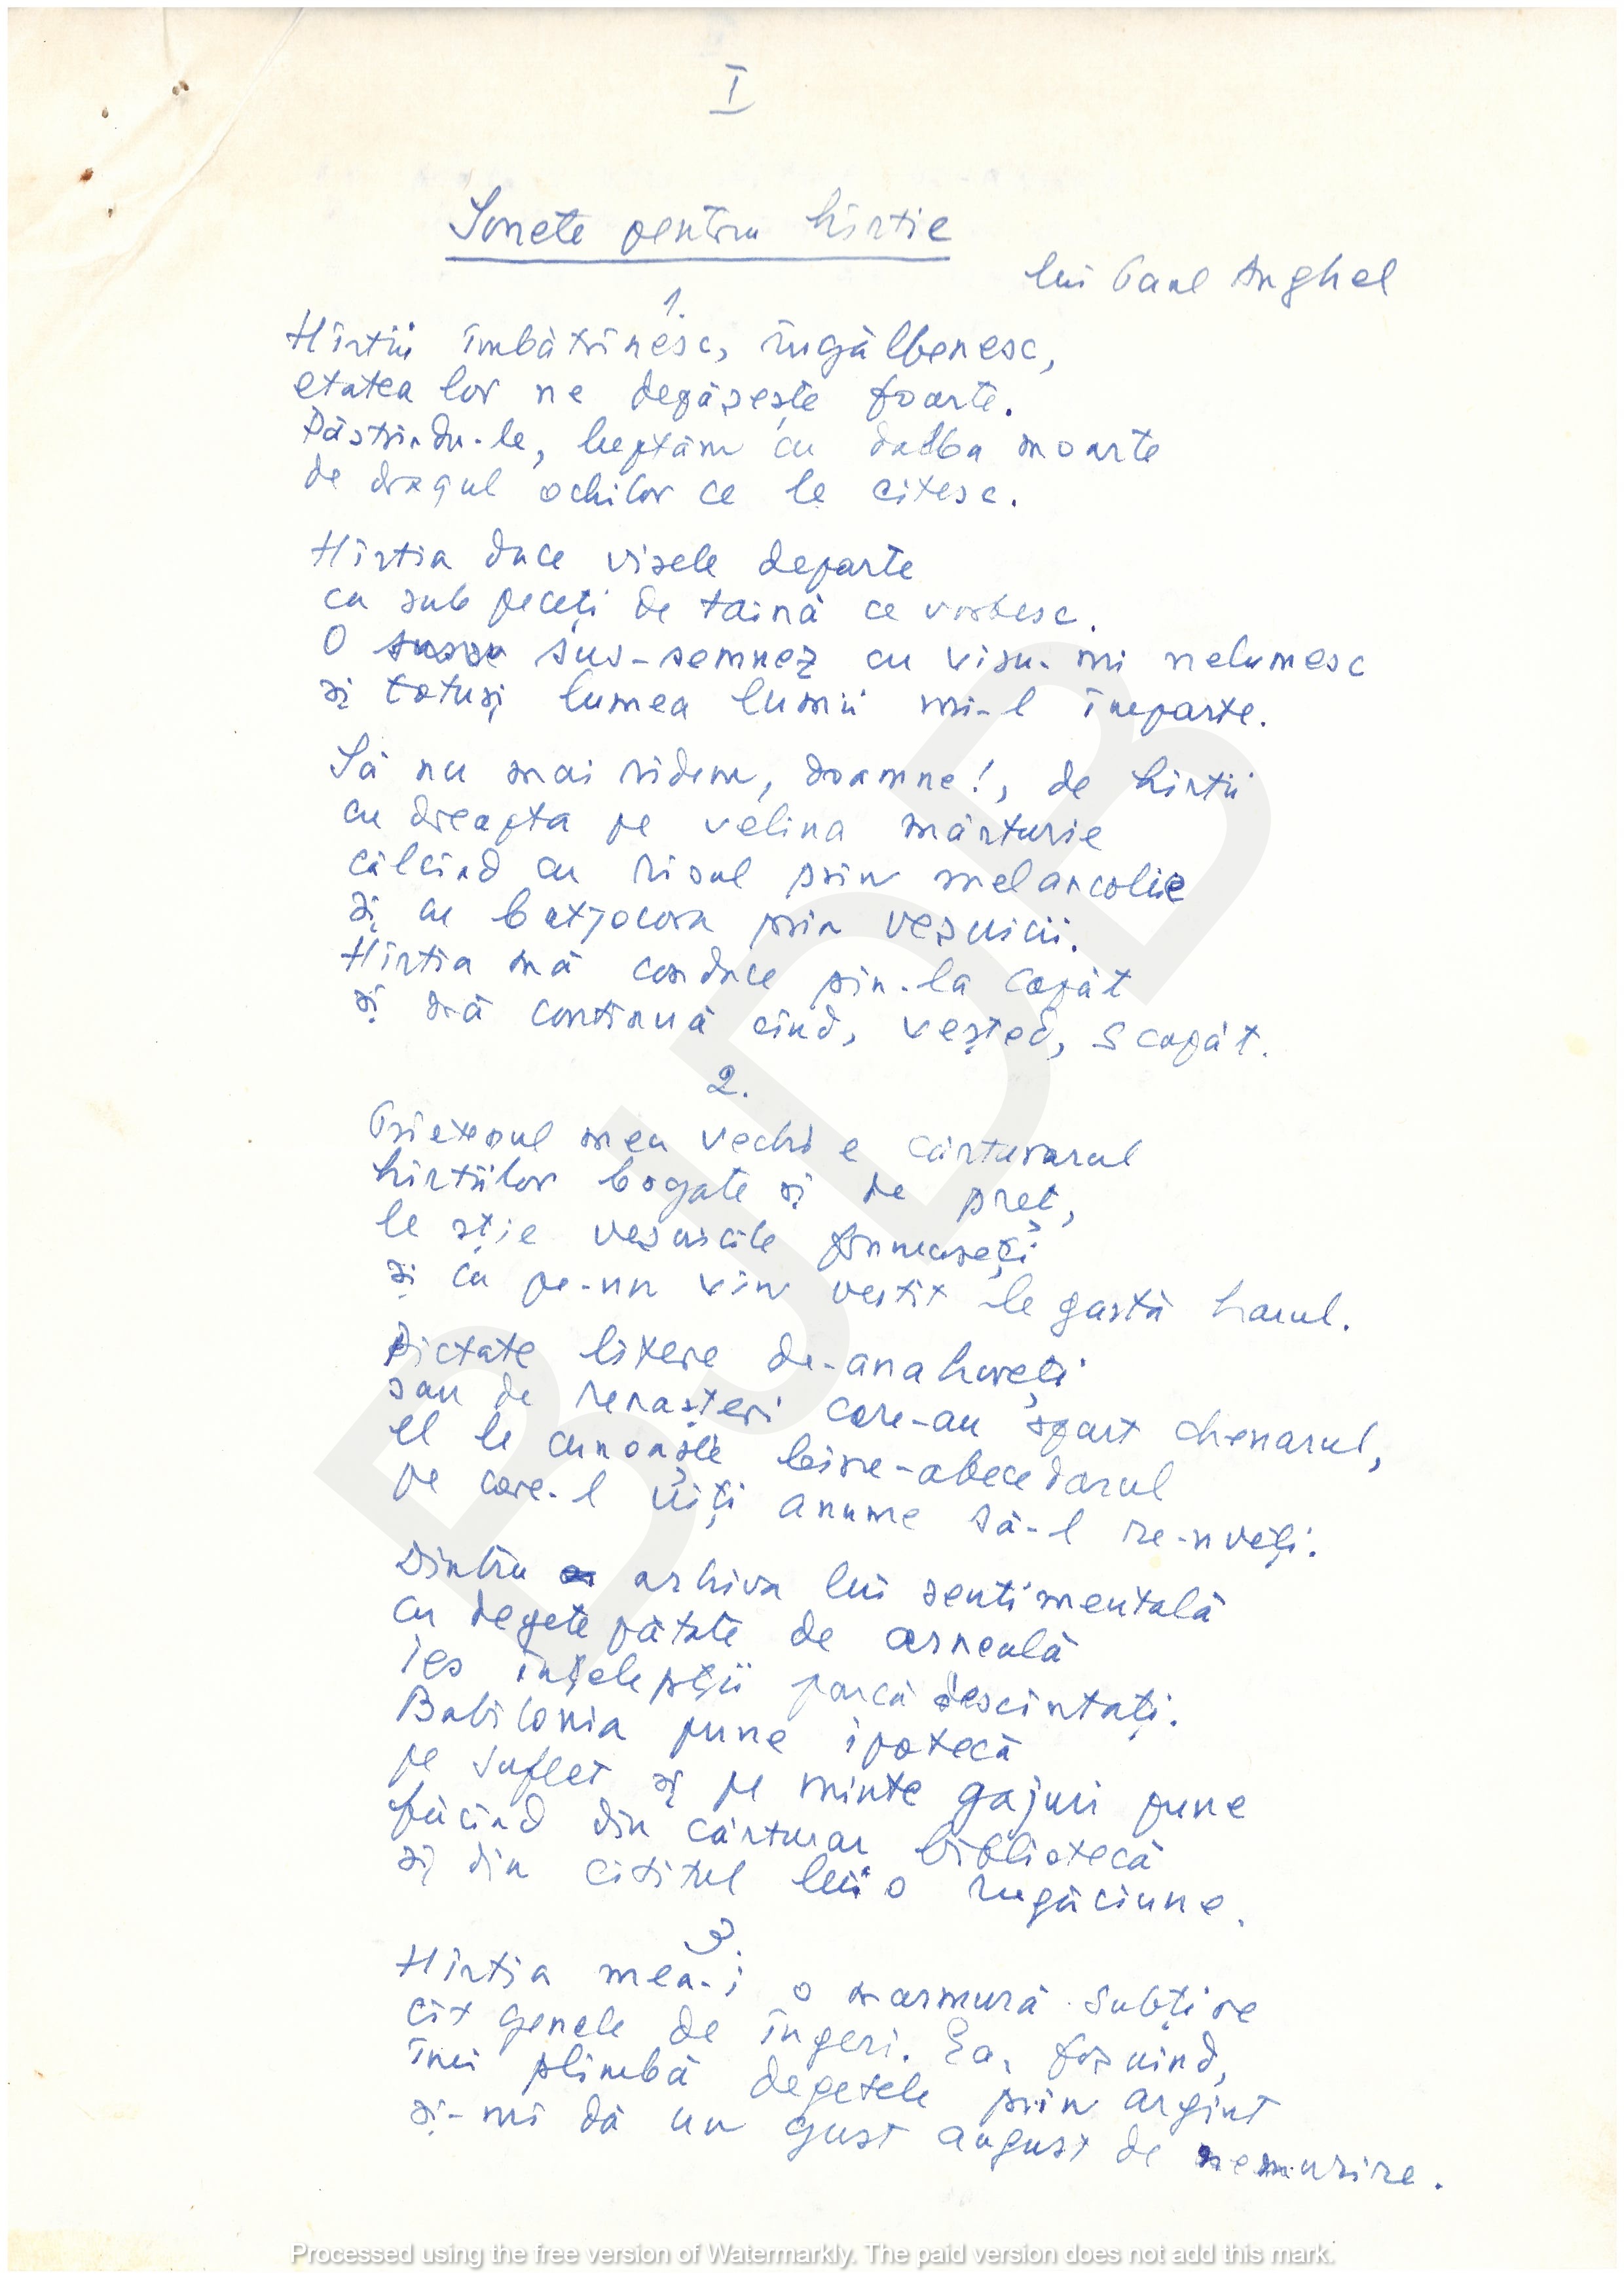 I
Sonete pentru hîrtie
lui Paul Anghel
1.
Hîrtii îmbătrînesc, îngălbenesc,
etatea lor ne depășește foarte.
Păstrîndu-le, luptăm cu dalba moarte
de dragul ochilor ce le citesc.
Hîrtia duce visele departe
ca sub peceți de taină ce vorbesc.
O sus-semnez cu visu-mi nelumesc
și totuși lumea lumii mi-l împarte.
Să nu mai rîdem, doamne!, de hîrtii
cu dreapta pe velina mărturie
călcînd cu rîsul prin melancolie
și cu batjocora prin veșnicii.
Hîrtia mă conduce pîn-la capăt
și mă continuă cînd, veșted, scapăt.
2.
Prietenul meu vechi e cărturarul
hîrtiilor bogate și de preț,
le știe veșnicile frumuseți
și ca pe-un vin vestit le gustă harul.
Dictate litere de-anahoreți
sau de renașteri care-au spart chenarul,
el le cunoaște bine-abecedarul
pe care-l uiți anume să-l re-nveți.
Dintru arhiva lui sentimentală
cu degete pătate de cerneală
ies înțelepții parcă descîntați.
Babilonia pune ipotecă
pe suflet și pe minte gajuri pune
făcînd din cărturar bibliotecă
și din cititul lui o rugăciune.
3.
Hîrtia mea-i o marmură subțire
cît genele de îngeri. Ea, foșnind,
îmi plimbă degetele prin argint
și-mi dă un gust august de nemurire.
BJDB
Processed using the free version of Watermarkly. The paid version does not add this mark.